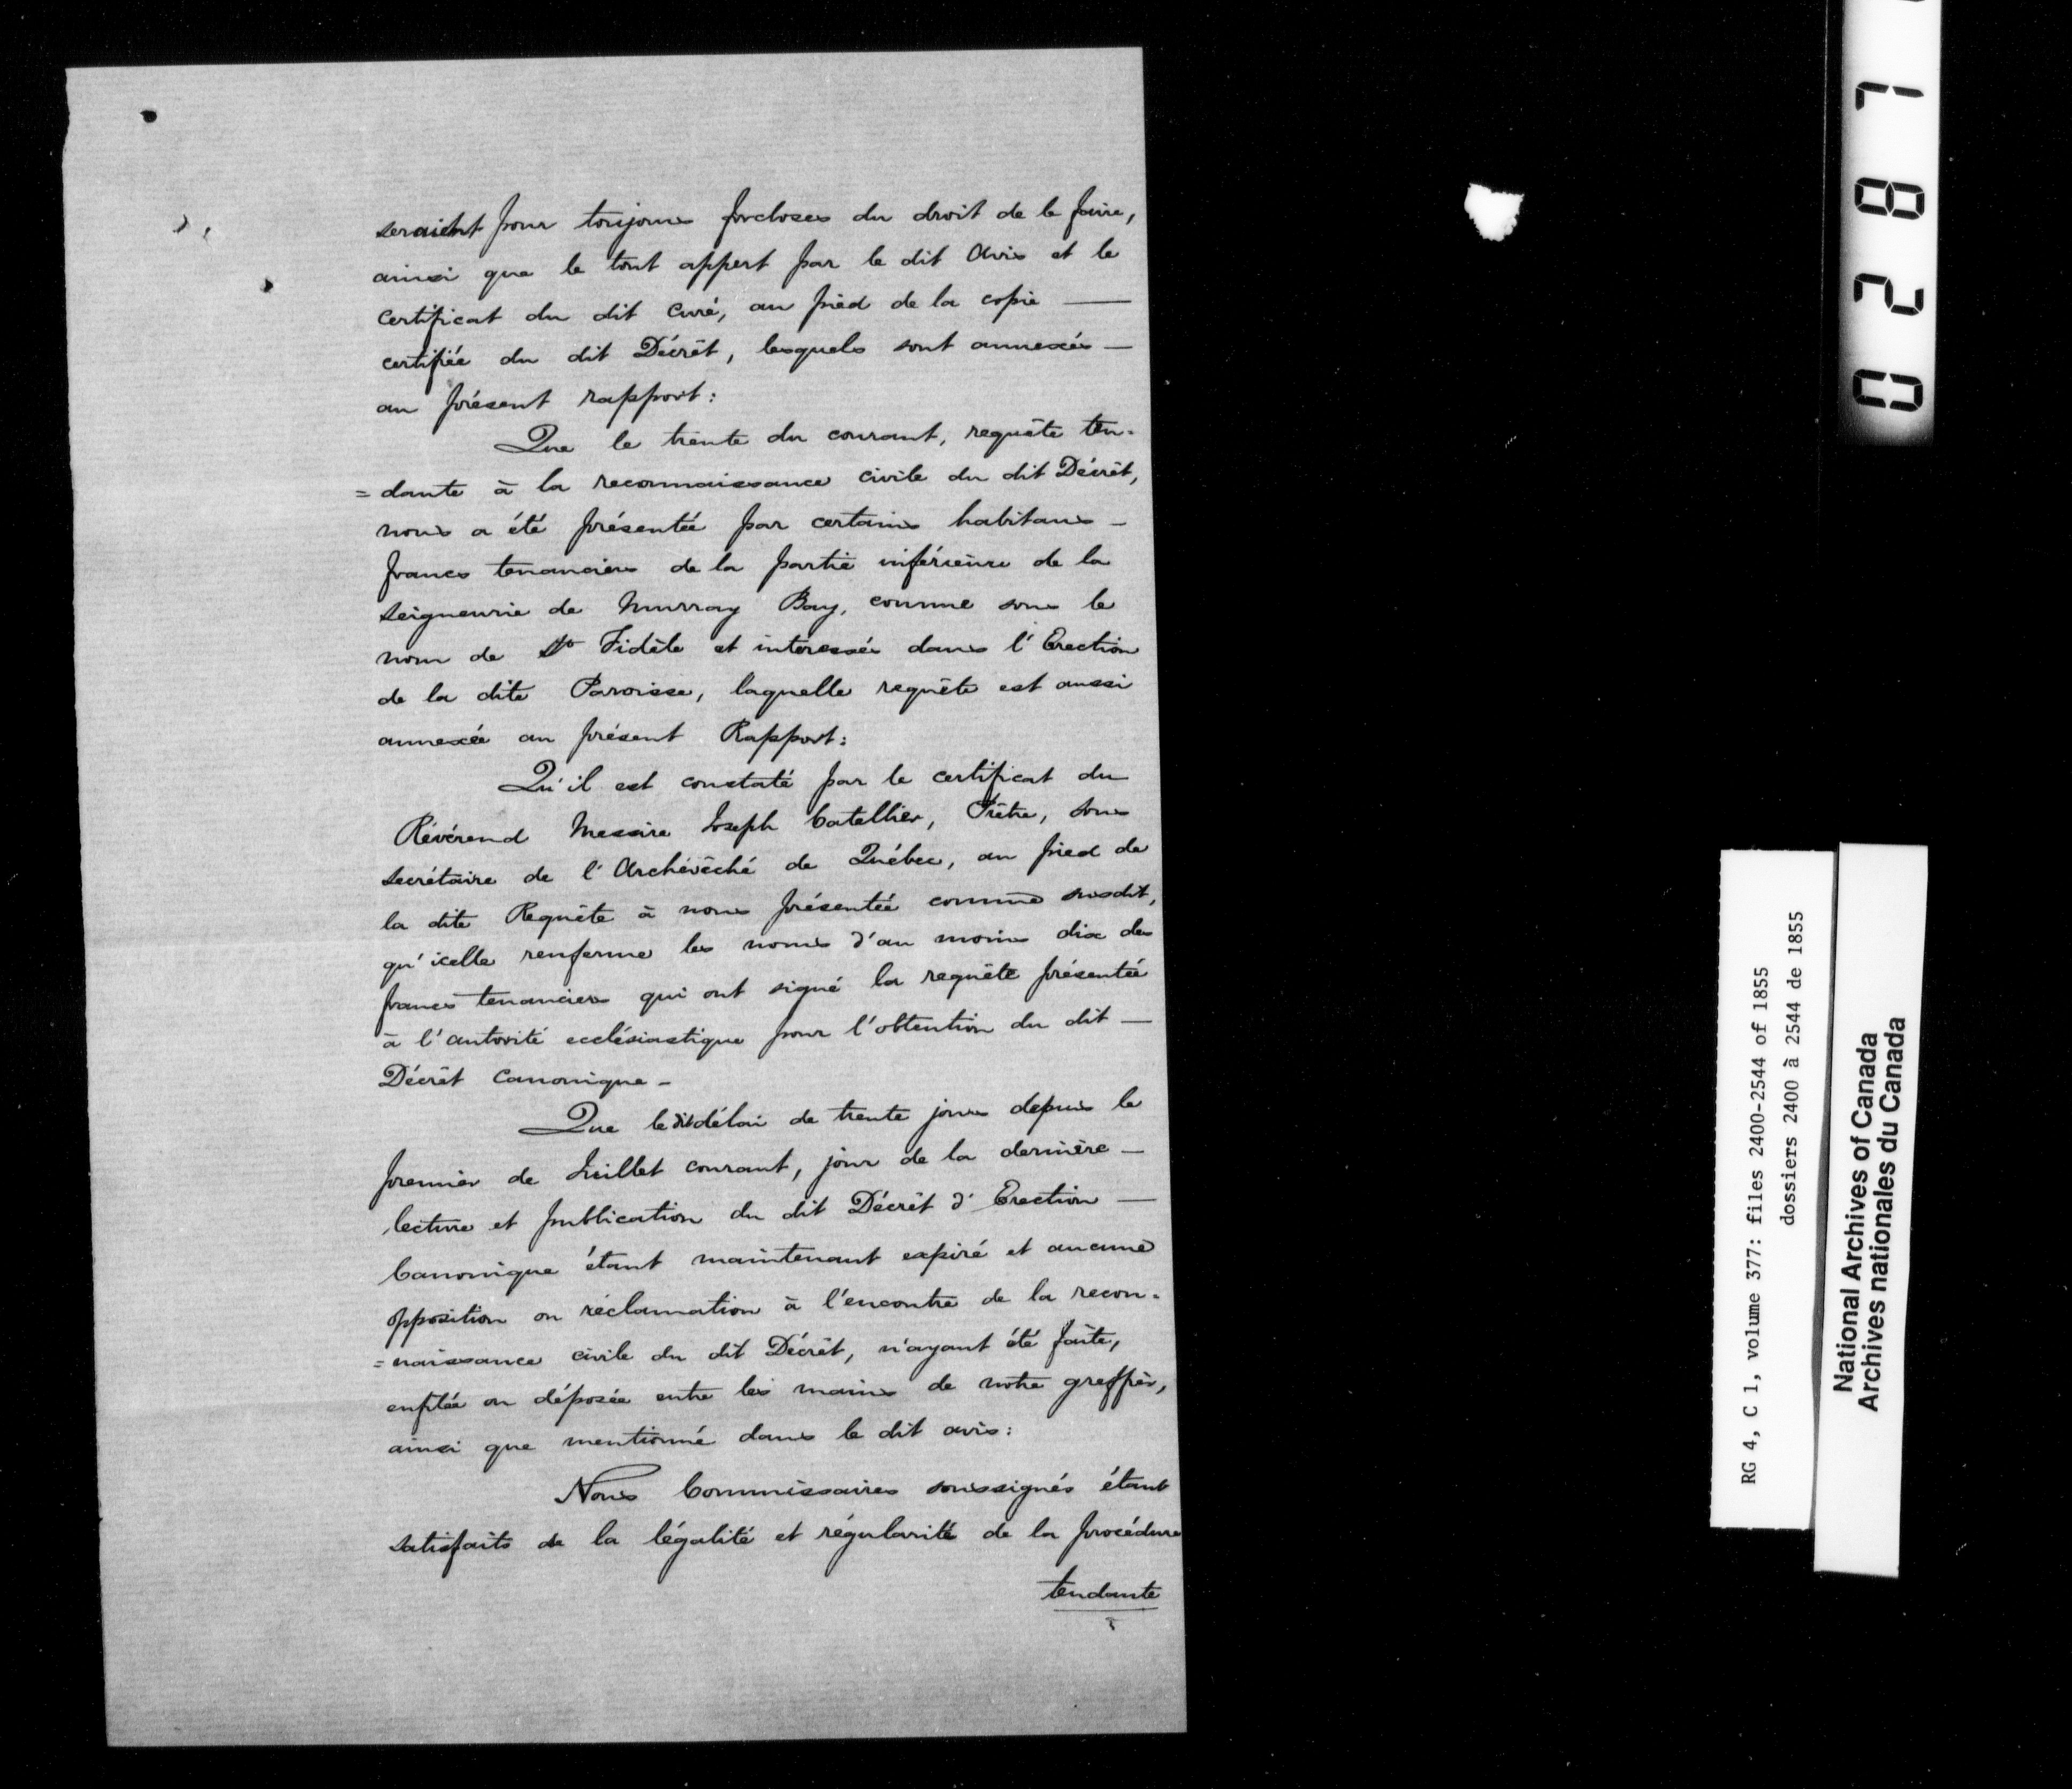 seraient pour toujours forcloses du droit de le faire,
ainsi que le tout appert par le dit Avis et le
certificat du dit Curé, au pied de la copie —
certifiée du dit Décrêt, lesquels sont annexés —
au présent rapport:
Que le trente du courant, requête ten-
=dante à la reconnaissance civile du dit Décrêt,
nous a été présentée par certains habitans —
francs tenanciers de la partie inférieure de la
Seigneurie de Murray Bay, connue sous le
nom de St Fidèle et interessés dans l'Erection
de la dite Paroisse, laquelle requête est aussi
annexée au présent Rapport:
Qu'il est constaté par le certificat du
Révérend Messire Joseph Catellier, Prêtre, sous
secrétaire de l'Archévêché de Québec, au pied de
la dite Requête à nous présentée comme susdit,
qu'icelle renferme les noms d'au moins dix des
francs tenanciers qui ont signé la requête présentée
à l'autorité ecclésiastique pour l'obtention du dit —
Décrêt Canonique —
Que le dit délai de trente jours depuis le
premier de Juillet courant, jour de la dernière —
lecture et publication du dit Décrêt d'Erection —
Canonique étant maintenant expiré et aucune
opposition ou réclamation à l'encontre de la recon-
=naissance civile du dit Décrêt, n'ayant été faite,
enfilée ou déposée entre les mains de notre greffier,
ainsi que mentionné dans le dit avis:
Nous Commissaires soussignés étant
satisfaits de la légalité et régularité de la procédure
tendante
0287
RG 4, C 1, volume 377: files 2400-2544 of 1855
dossiers 2400 à 2544 de 1855
National Archives of Canada
Archives nationales du Canada